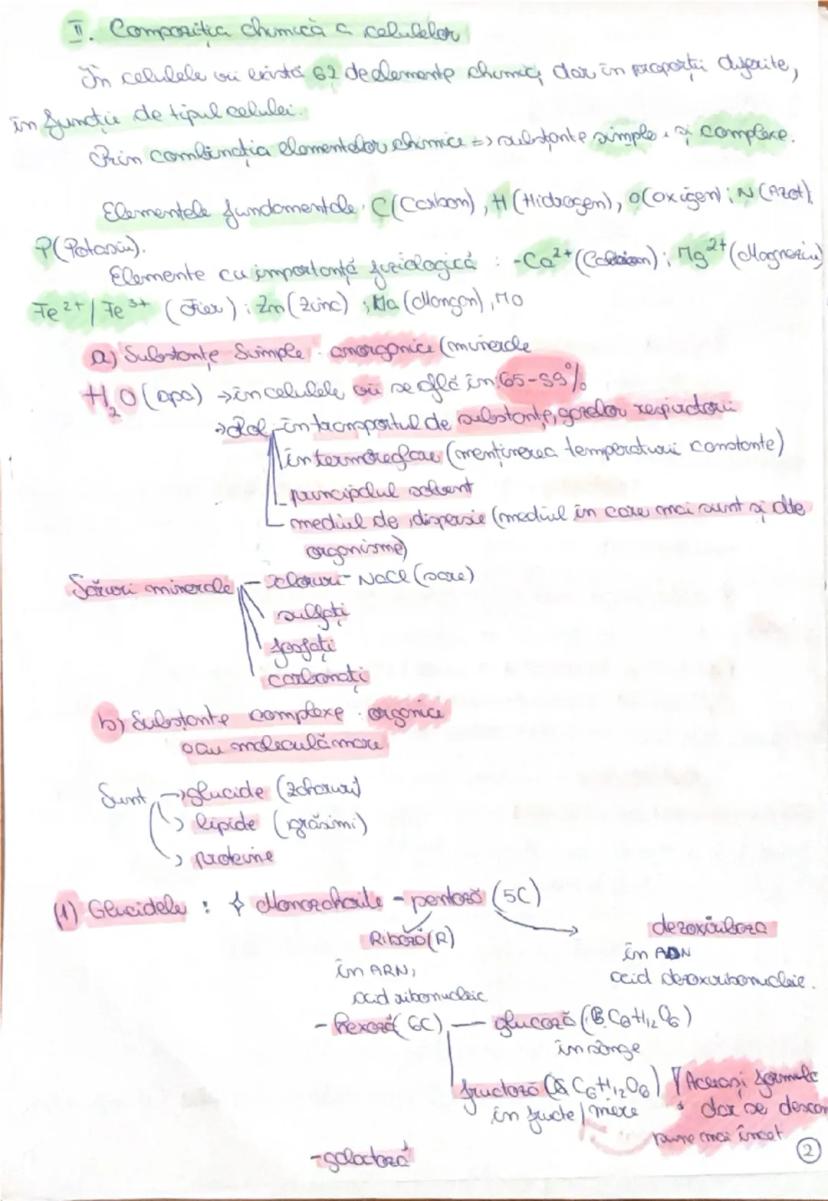 II. Compoziția chimică a celulelor
În celulele vii există 62 de elemente chimice, dar în proporții diferite,
în funcție de tipul celulei.
Prin combinația elementelor chimice => substanțe simple și complexe.
Elementele fundamentale: C(Carbon), H(Hidrogen), O(Oxigen); N(Azot),
P(Potasiu).
Elemente cu importanță fiziologică: - Ca²⁺ (Calciu); Mg²⁺ (Magneziu)
Fe²⁺/Fe³⁺ (Fier); Zn(Zinc); Na (Mangan), Mo
a) Substanțe Simple anorganice (minerale
H₂O (apa) → în celulele vii se află în 65-99%
→ Rol - în transportul de substanțe, gazelor respiratorii
în termoreglare (menținerea temperaturii constante)
principalul solvent
mediul de dispersie (mediul în care mai sunt și alte
organisme)
Săruri minerale - cloruri - NaCl (sare)
sulfați
fosfați
carbonați
b) Substanțe complexe organice
au moleculă mare
Sunt → glucide (zaharuri)
lipide (grăsimi)
proteine
(1) Glucidele: Monozaharide - pentoză (5C)
Riboză(R) dezoxiriboza
în ARN, în ADN
acid ribonucleic acid dezoxiribonucleic.
- hexoză (6C) - glucoză (C6H12O6)
în sânge
fructoză (C6H12O6) Aceeași formulă
în fructe/mere dar se descom
pune mai încet
- galactoză
2